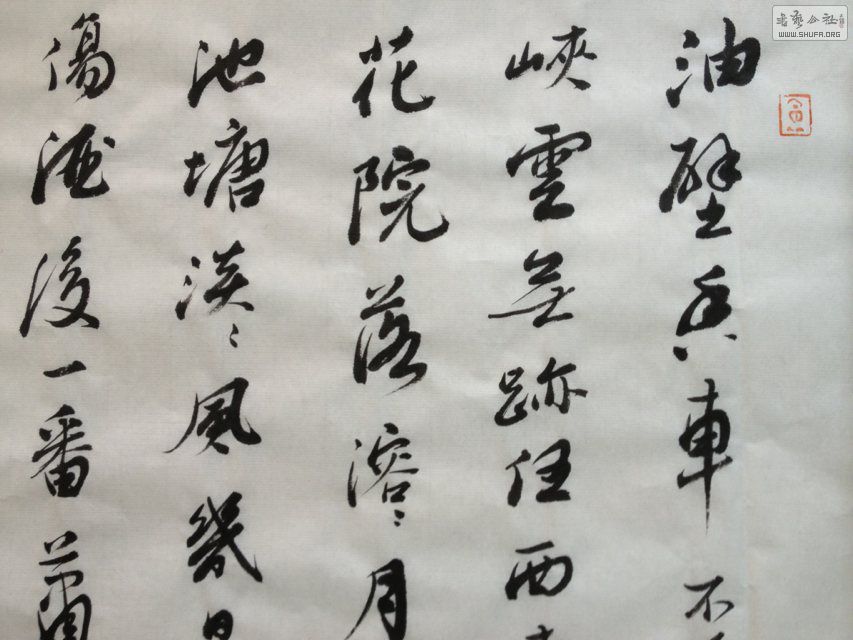 油壁香車不
峽雲無跡任西
花院落溶〻月
池塘淡〻風幾日
傷酒後一番蕭
書藝公社
WWW.SHUFA.ORG